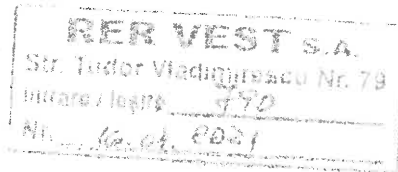 RER VEST S.A.
Str. Tudor Vladimirescu Nr. 79
Intrare / Ieșire 770
Nr. 2021